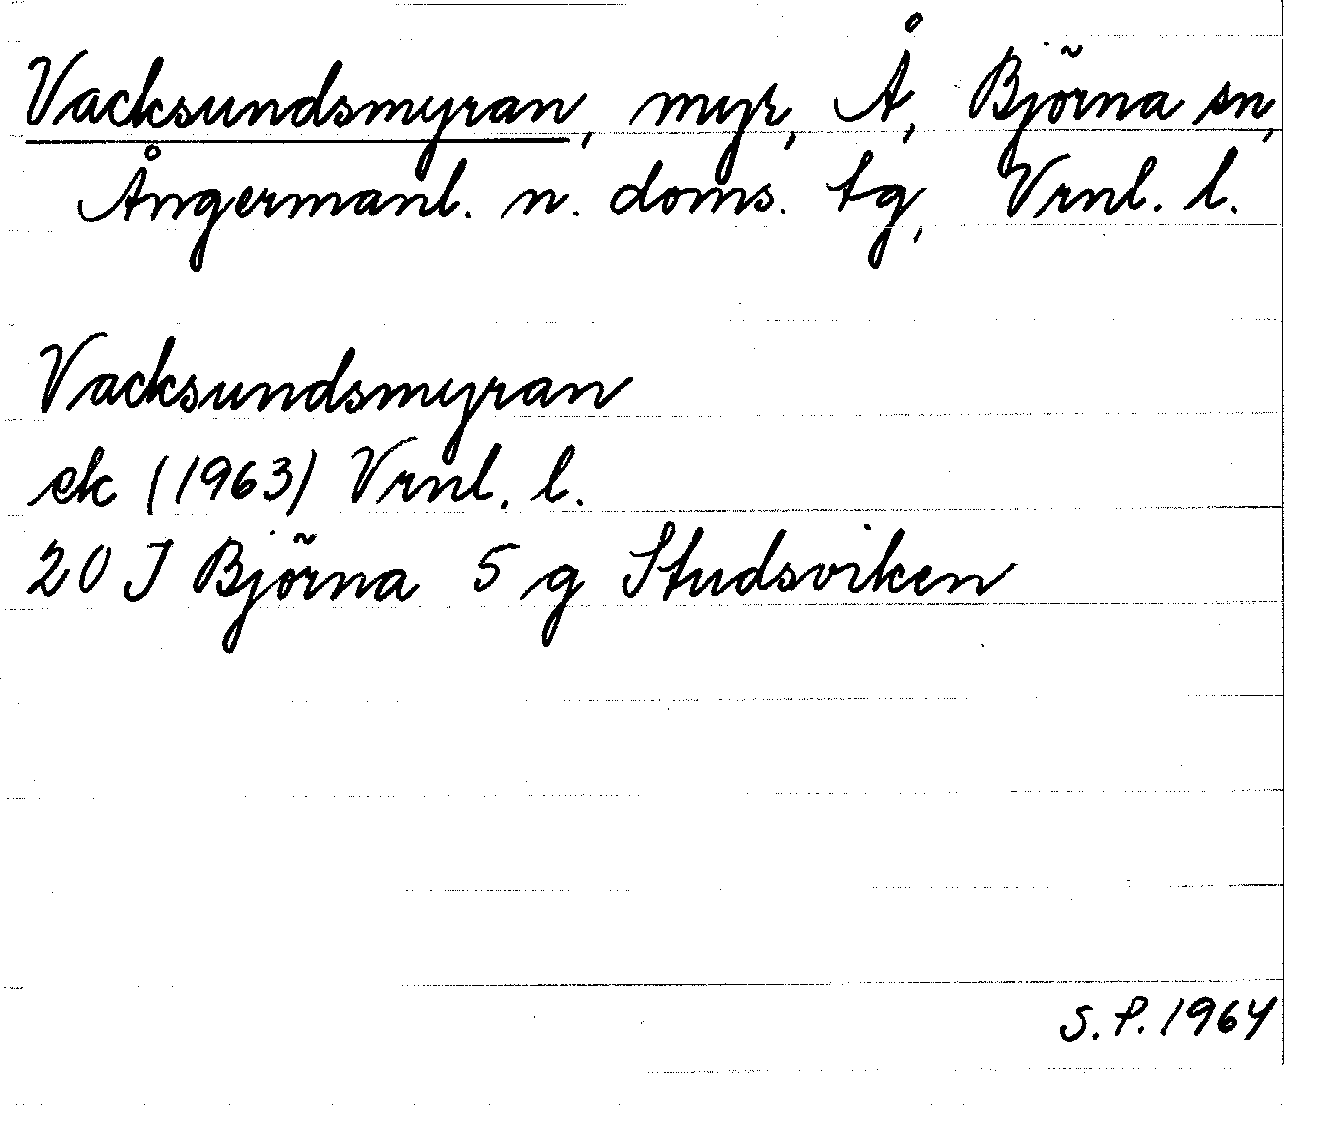 Vacksundsmyran, myr, Å, Björna sn,
Ångermanl. n. doms. tg, Vrnl. l.
Vacksundsmyran
ek (1963) Vrnl. l.
20 J Björna 5 g Studsviken
S.P. 1964